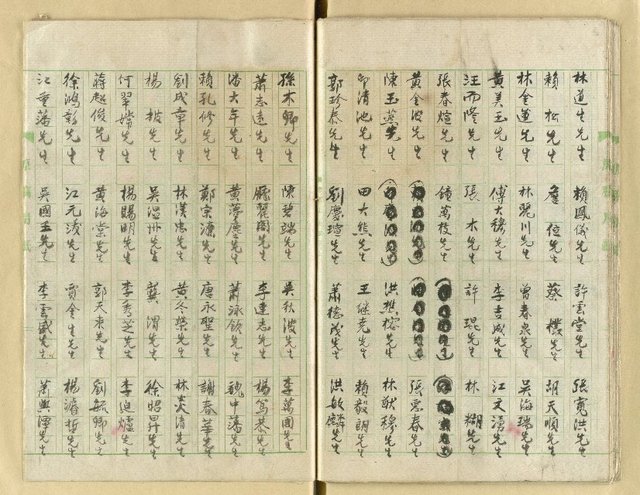 林道生先生 賴鳳儀先生 許雲堂先生 張寬洪先生
賴松先生 詹位先生 蔡樸先生 胡天順先生
林金蓮先生 林麗川先生 曾春泉先生 吳海瑞先生
黃美玉先生 傅大穢先生 李吉成先生 江文湧先生
汪雨隆先生 張木先生 許琨先生 林糊先生
張春煊先生 鍾萬枝先生
黃金波先生 張忠春先生
陳玉英先生 洪樵榕先生 林猷穆先生
邱清池先生 田大熊先生 王繼堯先生 賴毅朗先生
郭珍泰先生 劉慶瑄先生 蕭德茂先生 洪敏麟先生
孫木卿先生 陳碧瑞先生 吳秋波先生 李萬國先生
蕭志遠先生 李連志先生 楊篤恭先生
潘大年先生 黃夢塵先生 蕭詠欽先生 魏中先生
賴孔修先生 鄭宗濂先生 唐永聖先生 謝春華先生
劉成章先生 林漢忠先生 黃冬榮先生 林炎清先生
楊枝先生 吳溫州先生 龔渭先生 徐昭昇先生
何翠嫦先生 楊賜明先生 李秀芝先生 李迎爐先生
蔣超俊先生 黃海棠先生 郭天來先生 劉毓卿先生
徐鴻彰先生 江元浚先生 賈金生先生 楊濟哲先生
江重藩先生 吳國玉先生 李雲盛先生 蕭興先生